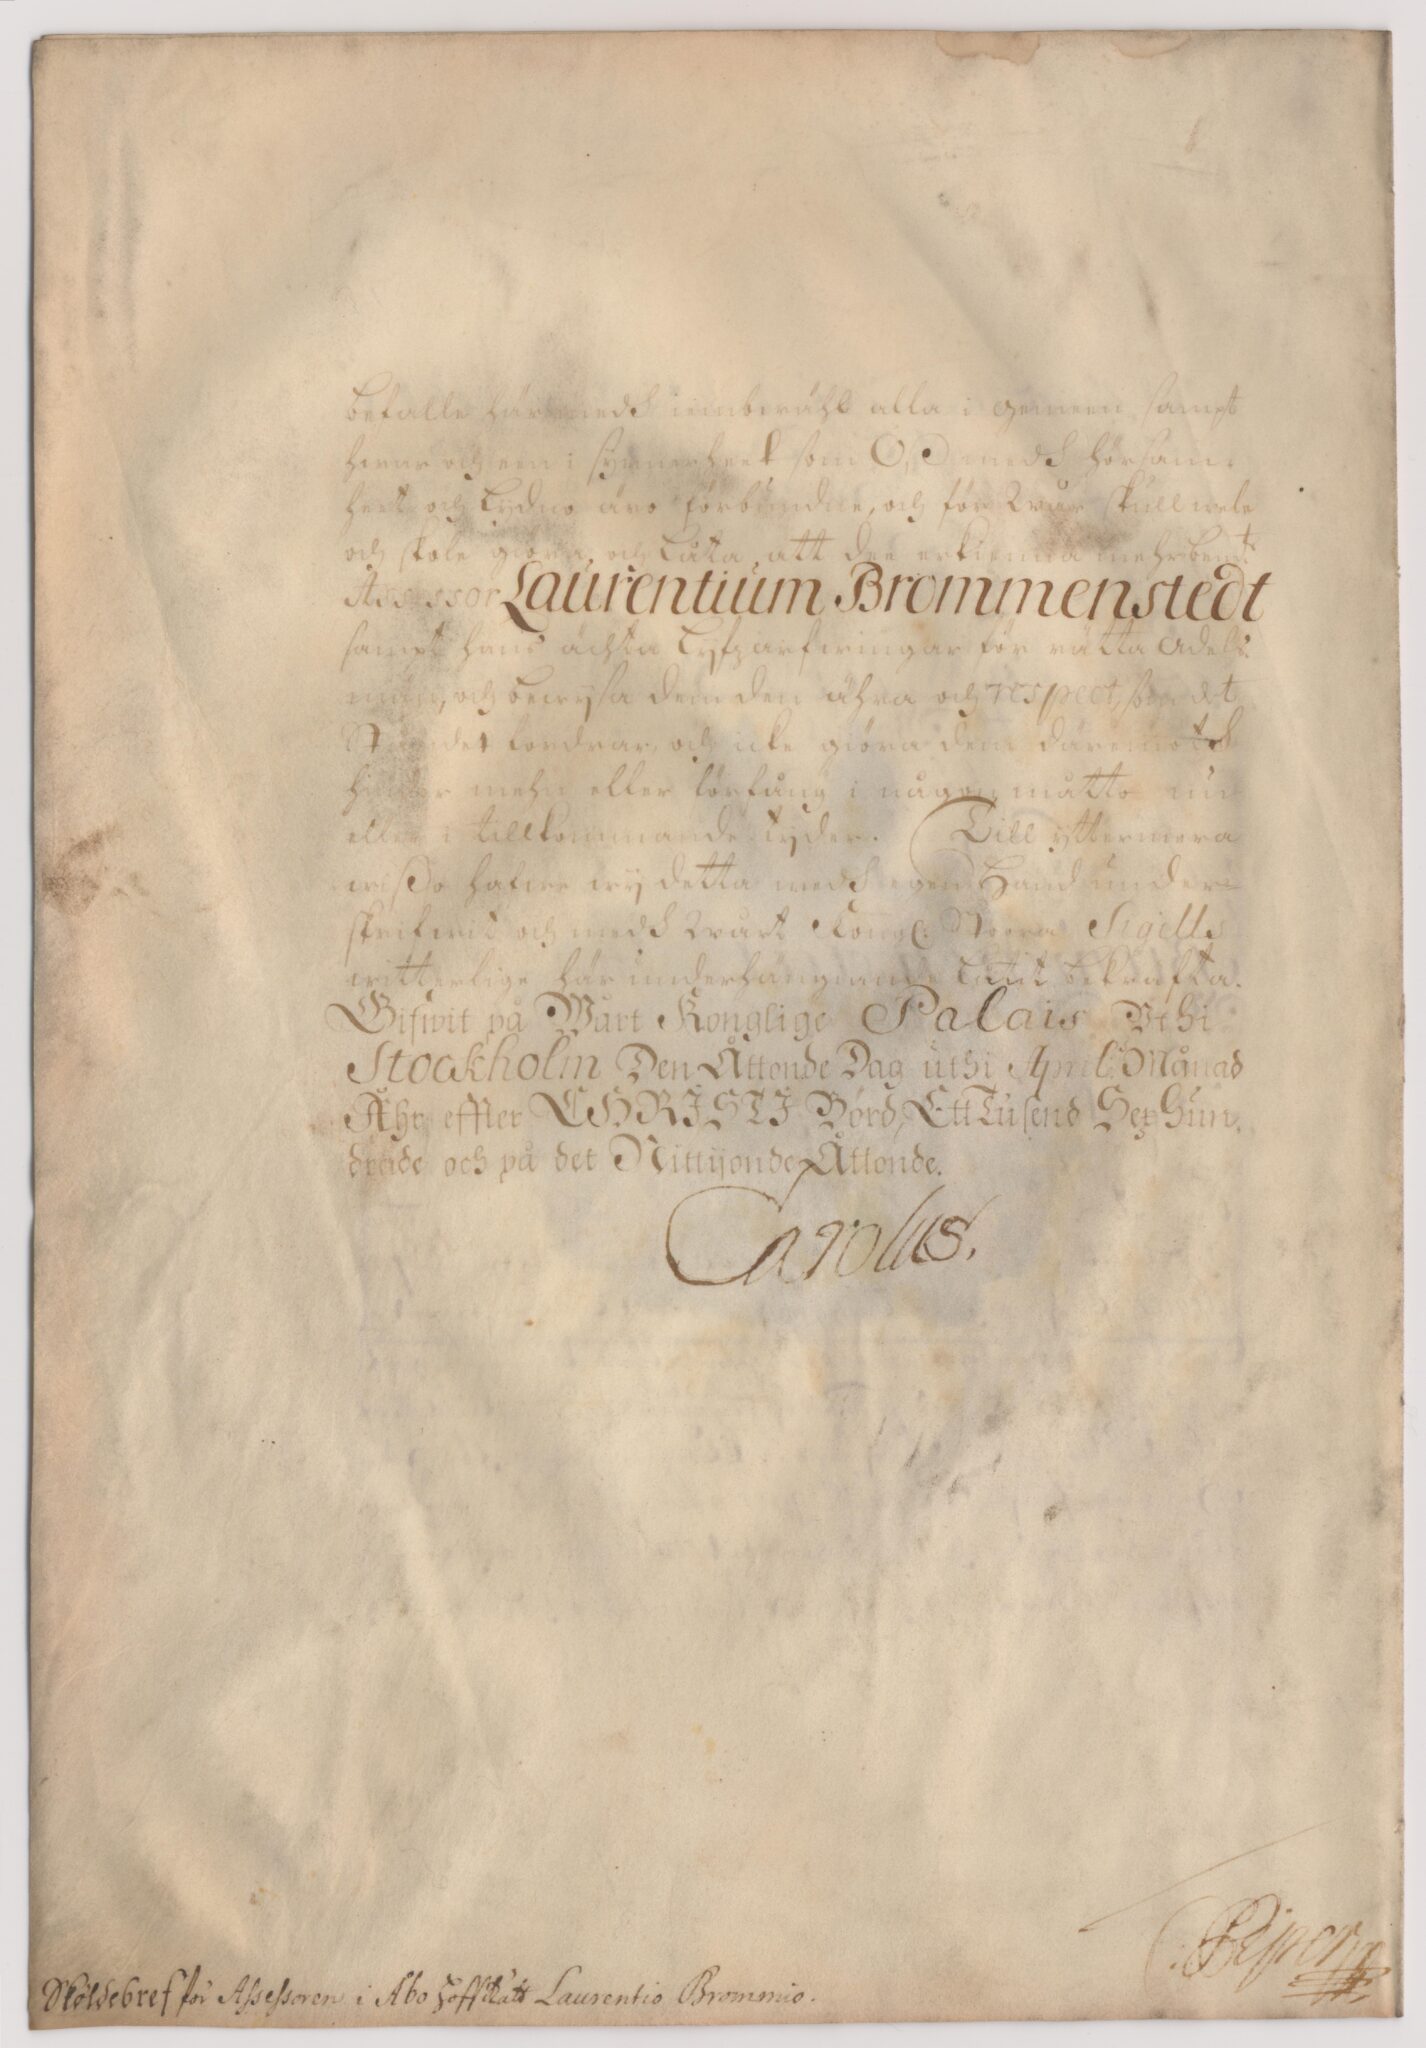 befalle här medh iembwähl alla i gemeen sampt
hwar och een i synnerheet som Oß medh hörsam-
heet och Lydno äro förbundne, och för Wår skull wele
och skole giöra, och Låta, att dee erkienna mehrbemt
Assessor Laurentium Brommenstedt
sampt hans ächta Lyfzarfwingar för rätta Adels-
män, och bewysa dem den ähra och respect, som det
Ståndet fordrar, och icke giöra dem däremoth
hinder mehn eller förfång i någon måtto nu
eller i tillkommande tyder. Till yttermera
wißo hafwe wy detta medh egen Hand under-
skrifwit och medh Wårt Kongl: Stoora Sigills
witterlige här underhängiande Låtit bekräfta.
Gifwit på Wårt Konglige Palais Uthi
Stockholm Den Åttonde Dag uthi April Månad
Åhr effter CHRISTI Börd, Ett Tusend Sex Hun-
drade och på det Nittijonde Åttonde.
Carolus.
C Piper
Sköldebref för Assessoren i Abo Hoffrätt Laurentio Brommio.